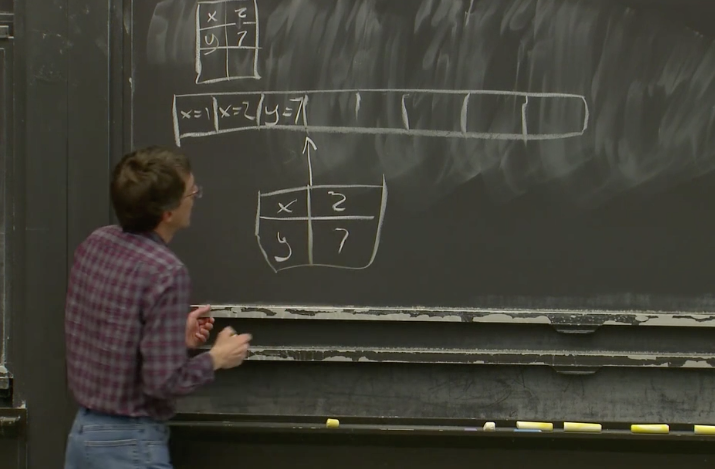 x 2
y 7
x=1 x=2 y=7
x 2
y 7